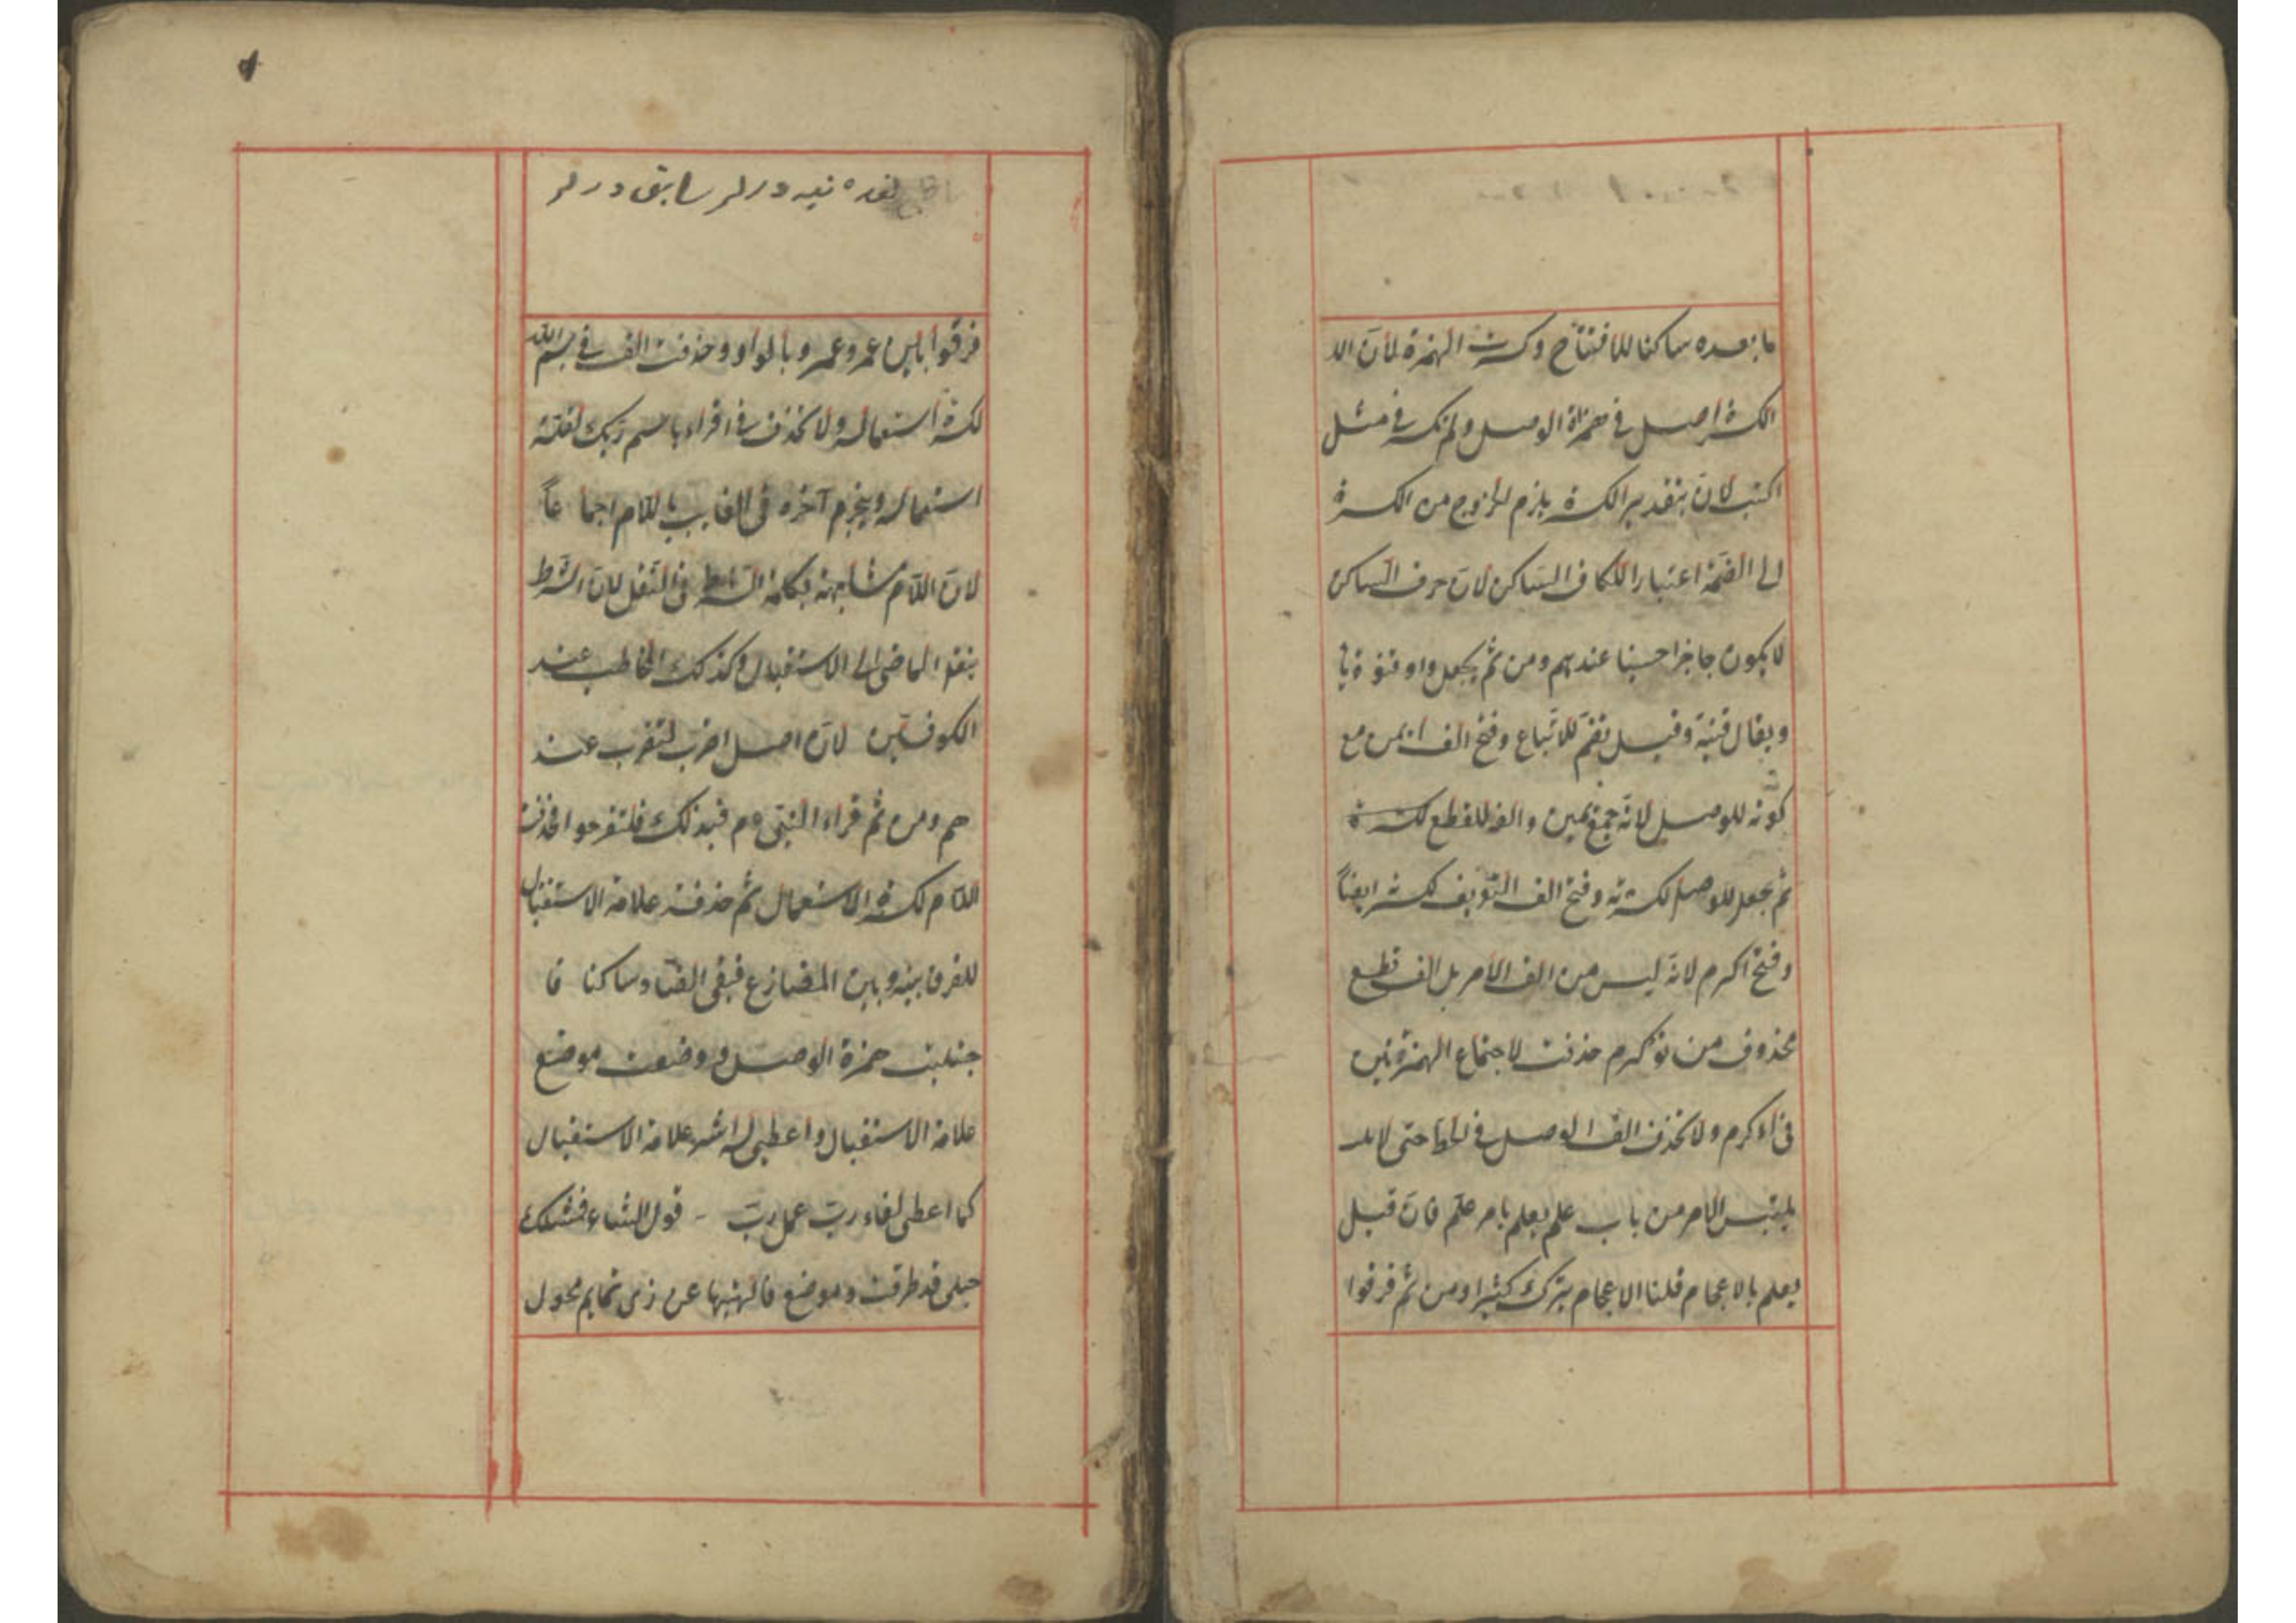 ما بعده ساكنا للافتتاح وكسرت الهمزة لأنّ الـ
الكسرة اصل في همزة الوصل ولم تكسر في مثل
اكتب لانّ بتقدير الكسرة يلزم الخروج من الكسرة
الى الضمّة اعتبارا للكاف السّاكن لانّ حرف السّاكن
لا يكون حاجزا حصينا عندهم ومن ثم يجعل واو قنوة يا
ويقال قنية وقيل تضمّ للاتّباع وفتح الف ايمن مع
كونه للوصل لانّه جمع يمين والفه للقطع
ثم جعل للوصل لكثرته وفتح الف التّعريف لكثرته ايضاً
وفتح اكرم لانّه ليس من الف الامر بل الف قطع
محذوف من تؤكرم حذفت لاجتماع الهمزتين
في أءكرم ولا تحذف الف الوصل في الخط حتى لا يلـ
يلتبس الامر من باب علم يعلم بامر علّم فان قيل
يعلم بالاعجام قلنا الاعجام يترك كثيرا ومن ثم فرقوا
سابق در
فرقوا بين عمر وعمرو بالواو وحذفت الف في بسم الله
لكثرة استعماله ولا تحذف في اقراء باسم ربك لقلّة
استعماله ويجزم آخره في الغايب باللام اجماعاً
لانّ اللّام مشابهة بكلمة الشّرط في النّقل لانّ الشّرط
ينقل الماضى الى الاستقبال وكذلك المخاطب عند
الكوفيّين لانّ اصل اضرب لتضرب عند
هم ومن ثم قراء النبي ءم فبذلك فلتفرحوا فحذفت
اللّام لكثرة الاستعمال ثم حذفت علامة الاستقبال
للفرق بينه وبين المضارع فبقى الضّاد ساكنا فا
جتلبت همزة الوصل ووضعت موضع
علامة الاستقبال واعطى له اثر علامة الاستقبال
كما اعطى لفاء ربّ عمل ربّ - قول الشاعر فمثلك
حبلى قد طرقت وموضع فالهيتها عن ذى تمايم محول